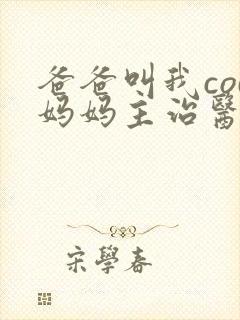 爸爸叫我co
妈妈主治醫
宋學春